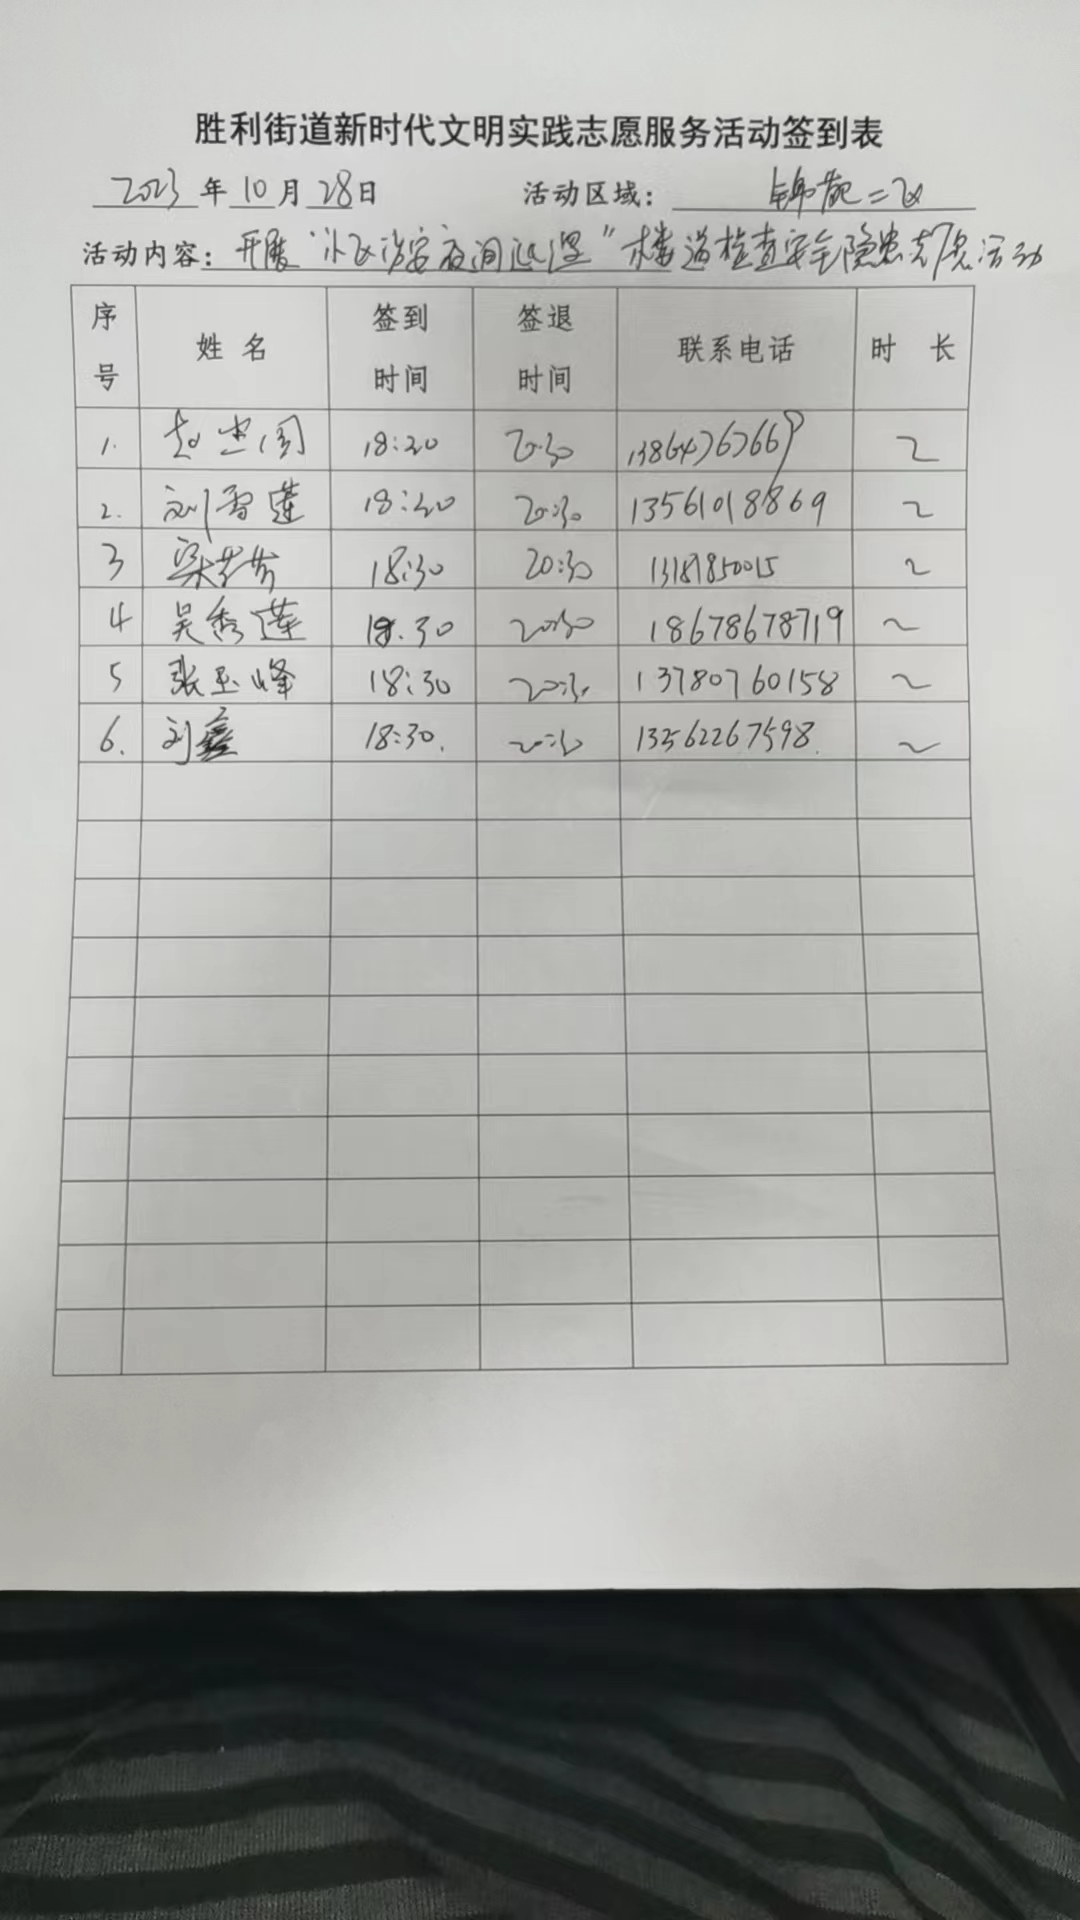 胜利街道新时代文明实践志愿服务活动签到表
2023年10月28日 活动区域: 锦苑二区
活动内容: 开展"社区治安夜间巡逻"楼道检查安全隐患志愿活动
序号 姓名 签到时间 签退时间 联系电话 时长
1. 赵 18:20 20:30 13864767669 2
2. 刘雪莲 18:20 20:30 13561018869 2
3 梁芳芳 18:30 20:30 1318 2
4 吴秀莲 18.30 20:30 18678678719 2
5 张玉峰 18:30 20:30 13780760158 2
6. 刘鑫 18:30. 20:30 13562267598. 2